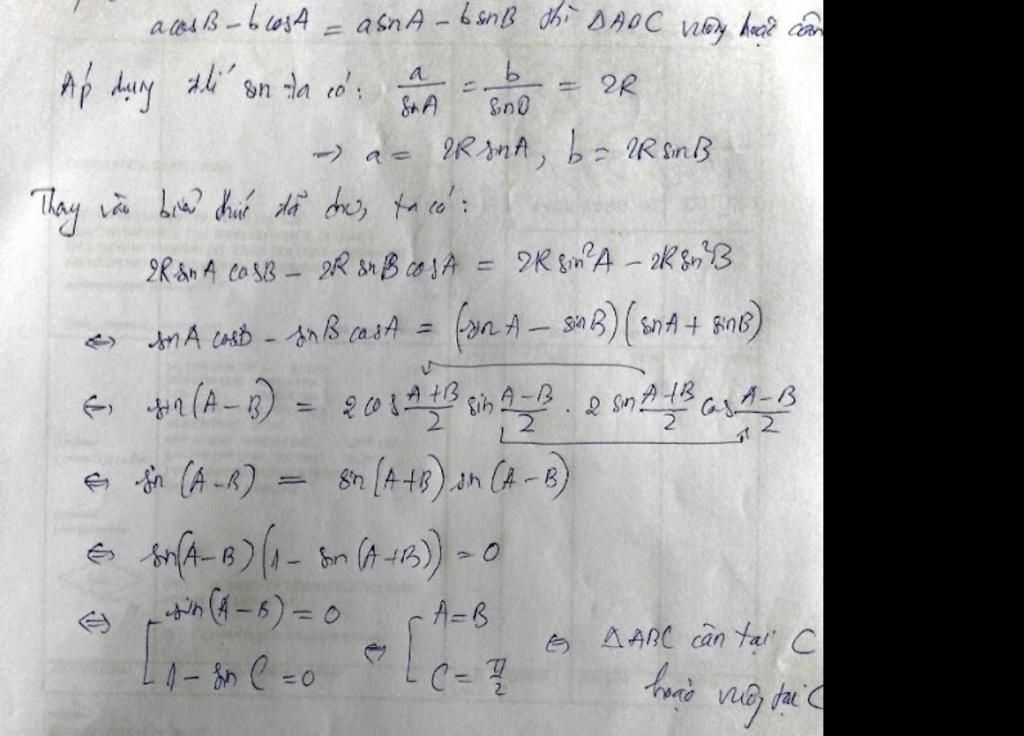 a cosB - b cosA = a sinA - b sinB thì ΔABC vuông hoặc cân
Áp dụng đlí sin ta có: a/sinA = b/sinB = 2R
→ a = 2R sinA, b = 2R sinB
Thay vào biểu thức đã cho, ta có:
2R sinA cosB - 2R sinB cosA = 2R sin²A - 2R sin²B
⇔ sinA cosB - sinB cosA = (sinA - sinB)(sinA + sinB)
⇔ sin(A-B) = 2 cos (A+B)/2 sin (A-B)/2 . 2 sin (A+B)/2 cos (A-B)/2
⇔ sin(A-B) = sin(A+B) sin(A-B)
⇔ sin(A-B)(1 - sin(A+B)) = 0
⇔ [ sin(A-B) = 0 ⇔ [ A=B ⇔ ΔABC cân tại C
1 - sin C = 0 C = π/2 hoặc vuông tại C